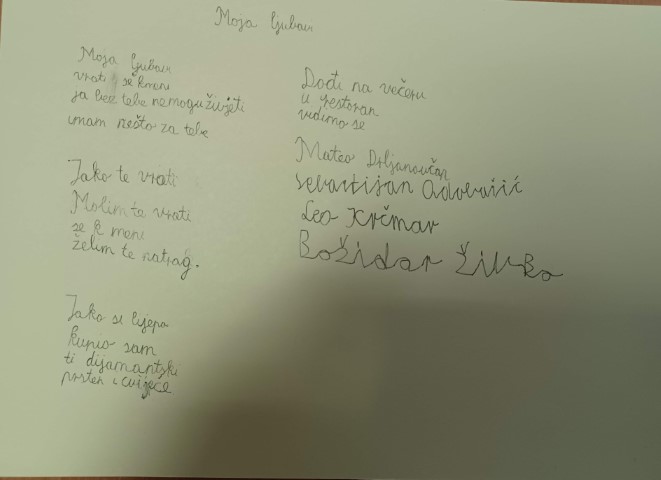 Moja ljubav
Moja ljubav
vrati se kmeni
ja bez tebe nemogu živjeti
imam nešto za tebe
Jako te vrati
Molim te vrati
se k meni
želim te natrag.
Jako si lijepa
kupio sam
ti dijamantski
prsten i cvijeće
Dođi na večeru
u restoran
vidimo se
Mateo
Sebastijan
Leo Krčmar
Božidar Živko